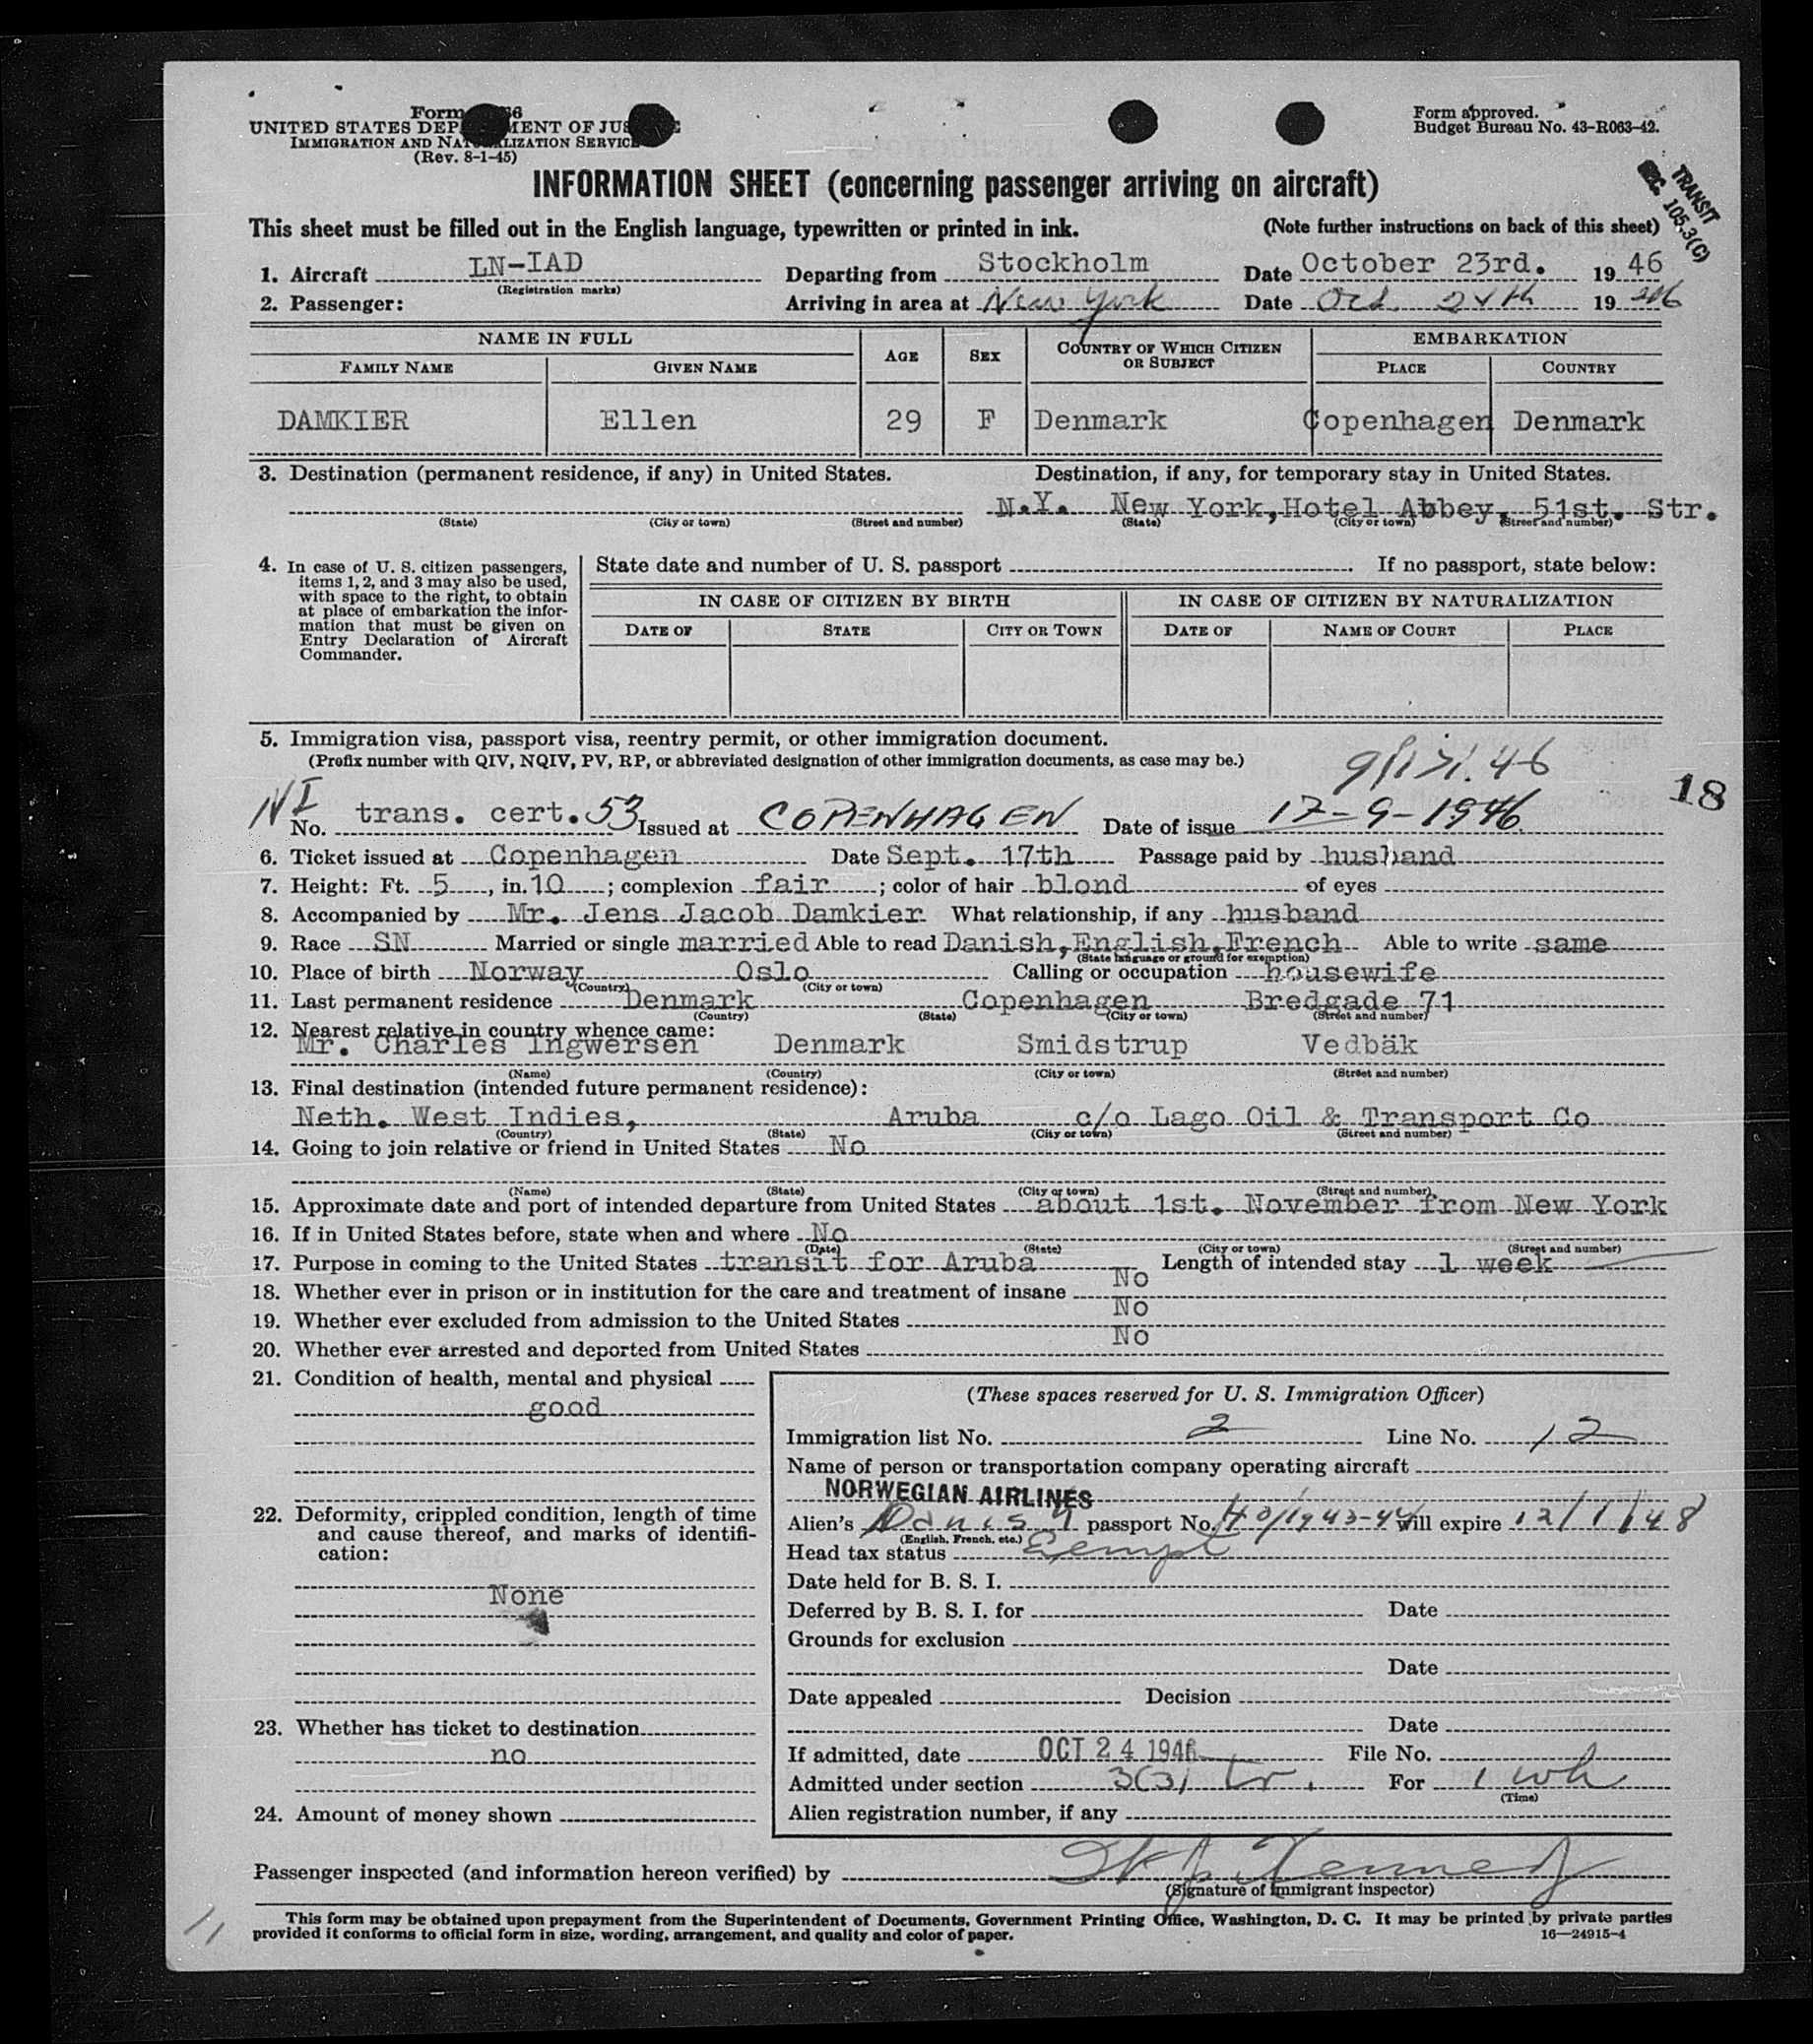 Form 66
UNITED STATES DEP MENT OF JUS E
IMMIGRATION AND NAT LIZATION SERVICE
(Rev. 8-1-45)
Form approved.
Budget Bureau No. 43-R063-42.
TRANSIT
SEC. 105.3(C)
INFORMATION SHEET (concerning passenger arriving on aircraft)
This sheet must be filled out in the English language, typewritten or printed in ink. (Note further instructions on back of this sheet)
1. Aircraft LN-IAD Departing from Stockholm Date October 23rd. 19 46
(Registration marks)
2. Passenger: Arriving in area at New York Date Oct. 24th 19 46
NAME IN FULL AGE SEX COUNTRY OF WHICH CITIZEN OR SUBJECT EMBARKATION
FAMILY NAME GIVEN NAME PLACE COUNTRY
DAMKIER Ellen 29 F Denmark Copenhagen Denmark
3. Destination (permanent residence, if any) in United States. Destination, if any, for temporary stay in United States.
N.Y. New York, Hotel Abbey, 51st. Str.
(State) (City or town) (Street and number) (State) (City or town) (Street and number)
4. In case of U. S. citizen passengers, items 1, 2, and 3 may also be used, with space to the right, to obtain at place of embarkation the information that must be given on Entry Declaration of Aircraft Commander.
State date and number of U. S. passport . If no passport, state below:
IN CASE OF CITIZEN BY BIRTH IN CASE OF CITIZEN BY NATURALIZATION
DATE OF STATE CITY OR TOWN DATE OF NAME OF COURT PLACE
5. Immigration visa, passport visa, reentry permit, or other immigration document.
(Prefix number with QIV, NQIV, PV, RP, or abbreviated designation of other immigration documents, as case may be.)
18
NI
No. trans. cert. 53 Issued at COPENHAGEN Date of issue 17-9-1946
6. Ticket issued at Copenhagen Date Sept. 17th Passage paid by husband
7. Height: Ft. 5, in. 10; complexion fair; color of hair blond of eyes
8. Accompanied by Mr. Jens Jacob Damkier What relationship, if any husband
9. Race SN Married or single married Able to read Danish, English, French Able to write same
(State language or ground for exemption)
10. Place of birth Norway Oslo Calling or occupation housewife
(Country) (City or town)
11. Last permanent residence Denmark Copenhagen Bredgade 71
(Country) (State) (City or town) (Street and number)
12. Nearest relative in country whence came:
Mr. Charles Ingwersen Denmark Smidstrup Vedbäk
(Name) (Country) (City or town) (Street and number)
13. Final destination (intended future permanent residence):
Neth. West Indies, Aruba c/o Lago Oil & Transport Co
(Country) (State) (City or town) (Street and number)
14. Going to join relative or friend in United States No
(Name) (State) (City or town) (Street and number)
15. Approximate date and port of intended departure from United States about 1st. November from New York
16. If in United States before, state when and where No
(Date) (State) (City or town) (Street and number)
17. Purpose in coming to the United States transit for Aruba Length of intended stay 1 week
18. Whether ever in prison or in institution for the care and treatment of insane No
19. Whether ever excluded from admission to the United States No
20. Whether ever arrested and deported from United States No
21. Condition of health, mental and physical
good
22. Deformity, crippled condition, length of time and cause thereof, and marks of identification:
None
23. Whether has ticket to destination
no
24. Amount of money shown
(These spaces reserved for U. S. Immigration Officer)
Immigration list No. 2 Line No. 12
Name of person or transportation company operating aircraft
NORWEGIAN AIRLINES
Alien's Danish passport No. 40/1943-44 will expire 12/1/48
(English, French, etc.)
Head tax status Exempt
Date held for B. S. I.
Deferred by B. S. I. for Date
Grounds for exclusion
Date
Date appealed Decision
Date
If admitted, date OCT 24 1946 File No.
Admitted under section 3(3) tr. For 1 wk
(Time)
Alien registration number, if any
Passenger inspected (and information hereon verified) by Kennedy
(Signature of immigrant inspector)
This form may be obtained upon prepayment from the Superintendent of Documents, Government Printing Office, Washington, D. C. It may be printed by private parties
provided it conforms to official form in size, wording, arrangement, and quality and color of paper. 16—24915-4